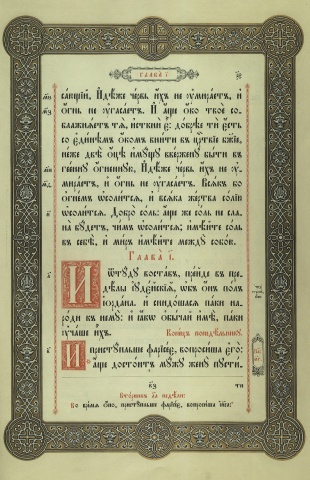 ГЛАВА І҃.
сающїй, Идѣже червь и҆́хъ не ᲂу҆мира́етъ, и҆
ѻ҆́гнь не ᲂу҆гаса́етъ. И҆ а҆́ще ѻ҆́ко твоѐ со-
блажнѧ́етъ тѧ̀, и҆сткнѝ є҆̀: добрѣ́е тѝ є҆́сть
со є҆ди́нѣмъ ѻ҆́комъ вни́ти въ црⷭ҇твїе бж҃їе,
не́же двѣ̀ ѻ҆́цѣ и҆мꙋ́щꙋ вве́рженꙋ бы́ти въ
гее́ннꙋ ѻ҆́гненнꙋю, И҆дѣ́же че́рвь и҆́хъ не ᲂу҆-
мира́етъ, и҆ ѻ҆́гнь не ᲂу҆гаса́етъ. Всѧ́къ бо
ѻ҆гне́мъ ѡ҆соли́тсѧ, и҆ всѧ́ка же́ртва со́лїю
ѡ҆соли́тсѧ. Добро̀ со́ль: а҆́ще же со́ль не сла-
на̀ бꙋ́детъ, чи́мъ ѡ҆соли́тсѧ; и҆мѣ́йте со́ль
въ себѣ̀, и҆ ми́ръ и҆мѣ́йте междꙋ̀ собо́ю.
Глава̀ і҃.
И҆ ѿтꙋ́дꙋ воста́въ, прїи́де въ пре-
дѣ́лы і҆ꙋде́йскїѧ, ѡб̾ ѻ҆́нъ по́лъ
і҆ѻрда́на. и҆ снидо́шасѧ па́ки на-
ро́ди къ немꙋ̀: и҆ ꙗ҆́кѡ ѡ҆бы́чай и҆мѣ̀, па́ки
ᲂу҆ча́ше и҆̀хъ.
Коне́цъ понедѣ́льникꙋ.
И҆ пристꙋ́пльше фарїсе́є, вопроси́ша є҆го̀:
а҆́ще досто́итъ мꙋ́жꙋ женꙋ̀ пꙋсти́-
к҃з
ти
Вто́рникъ л҃а недѣ́ли:
Во вре́мѧ ѻ҆́но, пристꙋ́пльше фарїсе́є, вопроси́ша і҆и҃са: